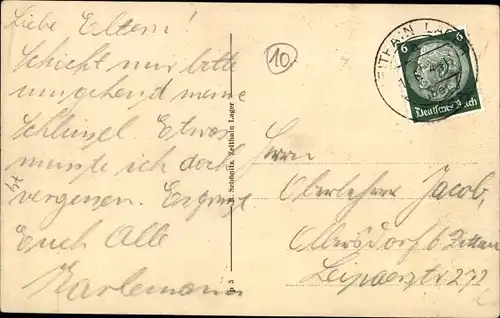 Liebe Eltern!
Schickt mir bitte
umgehend meine
Schlüssel Etwas
musste ich doch
vergessen. Es grüsst
Euch Alle
Karlemann
10
ZEITHAIN LAGER
6 6
Deutsches Reich
Schönitz, Zeithain Lager
P 5
Herrn
Oberlehrer Jacob,
Olbersdorf b. Zittau
Leipaerstr 277